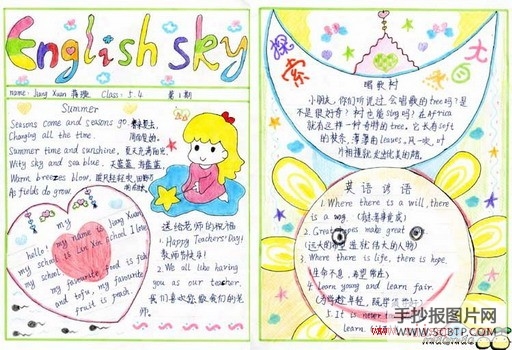 English sky
name: Jiang Xuan 蒋璇 Class: 5.4 第1期
Summer
Seasons come and seasons go,
Changing all the time.
Summer time and sunshine, 夏天充满阳光,
With sky and sea blue. 天蓝蓝,海蓝蓝,
Warm breezes blow, 暖风轻轻吹,
As fields do grow.
hello! my name is Jiang Xuan
my school is Lin Xin school I love
my school,
my favourite food is fish
and tofu, my favourite
fruit is peach.
送给老师的祝福
1. Happy Teachers' Day!
教师节快乐!
2. We all like having
you as our teacher.
我们喜欢您做我们的老
师。
探索
唱歌树
小朋友,你们听说过会唱歌的tree吗?是
不是很好奇?树也能sing吗?在Africa
就有这样一种奇特的tree,它长着soft
的枝条,薄薄的leaves,风一吹,叶
片相撞就发出优美的声音。
英语谚语
1. Where there is a will, there
is a way. (有志者事竟成)
2. Great hopes make great
(远大的希望造就伟大的人物)
3. Where there is life, there is hope.
(生命不息,希望常在)
4. Learn young and learn fair.
5. It is never
learn.
手抄报图片网
WWW.SCBTP.COM